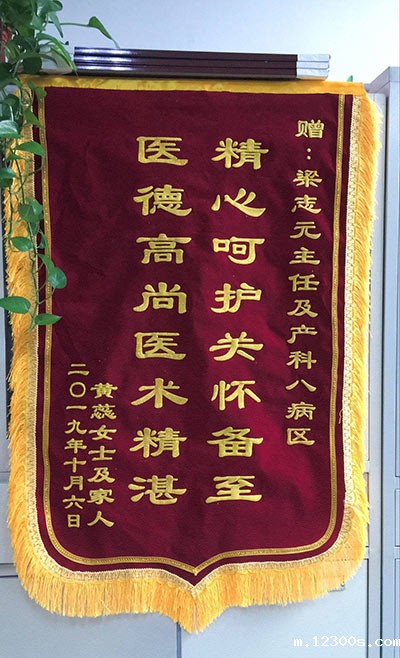 赠：梁志元主任及产科八病区
精心呵护关怀备至
医德高尚医术精湛
黄蕊女士及家人
二〇一九年十月六日
m.12300s.com